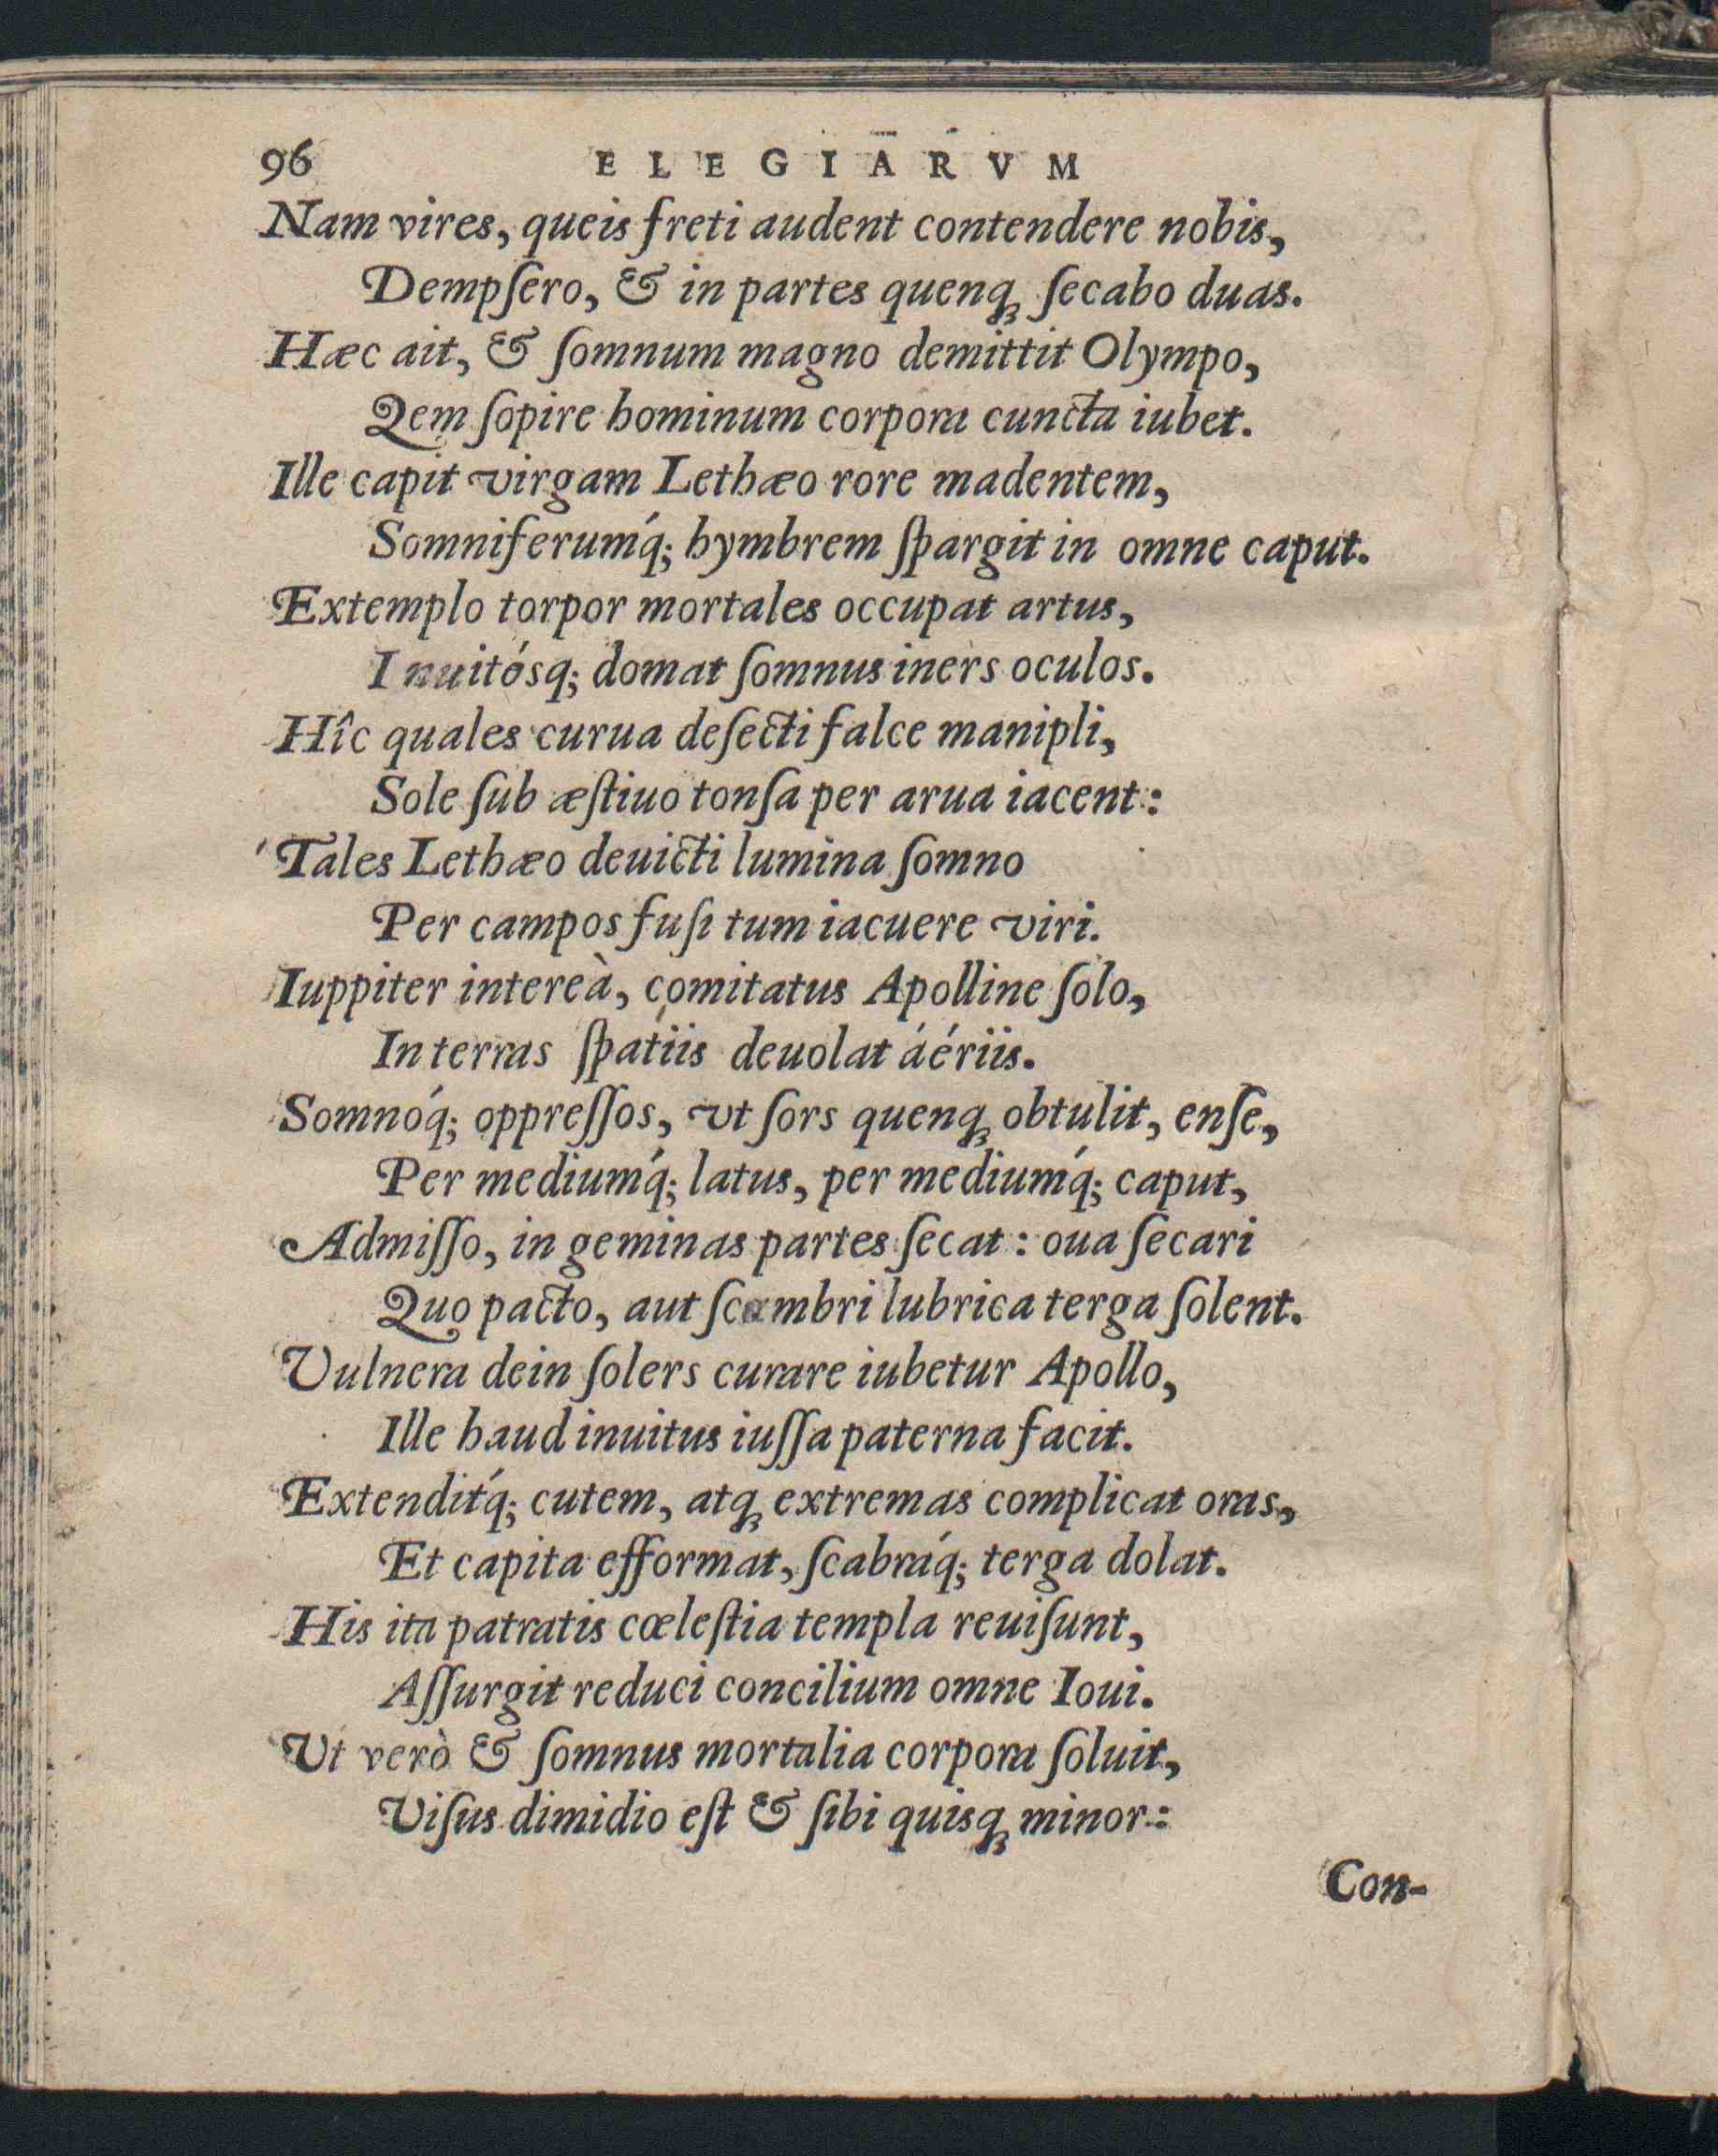 96 ELEGIARVM
Nam vires, queis freti audent contendere nobis,
Dempſero, & in partes quenq; ſecabo duas.
Hæc ait, & ſomnum magno demittit Olympo,
Qem ſopire hominum corpora cuncta iubet.
Ille capit virgam Lethæo rore madentem,
Somniferumq́; hymbrem ſpargit in omne caput.
Extemplo torpor mortales occupat artus,
Inuitósq; domat ſomnus iners oculos.
Hîc quales curua deſecti falce manipli,
Sole ſub æſtiuo tonſa per arua iacent:
Tales Lethæo deuicti lumina ſomno
Per campos fuſi tum iacuere viri.
Iuppiter intereà, comitatus Apolline ſolo,
In terras ſpatiis deuolat áériis.
Somnoq́; oppreſſos, vt ſors quenq; obtulit, enſe,
Per mediumq́; latus, per mediumq́; caput,
Admiſſo, in geminas partes ſecat: oua ſecari
Quo pacto, aut ſcombri lubrica terga ſolent.
Vulnera dein ſolers curare iubetur Apollo,
Ille haud inuitus iuſſa paterna facit.
Extenditq́; cutem, atq; extremas complicat oras,
Et capita efformat, ſcabraq́; terga dolat.
His ita patratis cœleſtia templa reuiſunt,
Aſſurgit reduci concilium omne Ioui.
Vt verò & ſomnus mortalia corpora ſoluit,
Viſus dimidio eſt & ſibi quisq; minor:
Con-